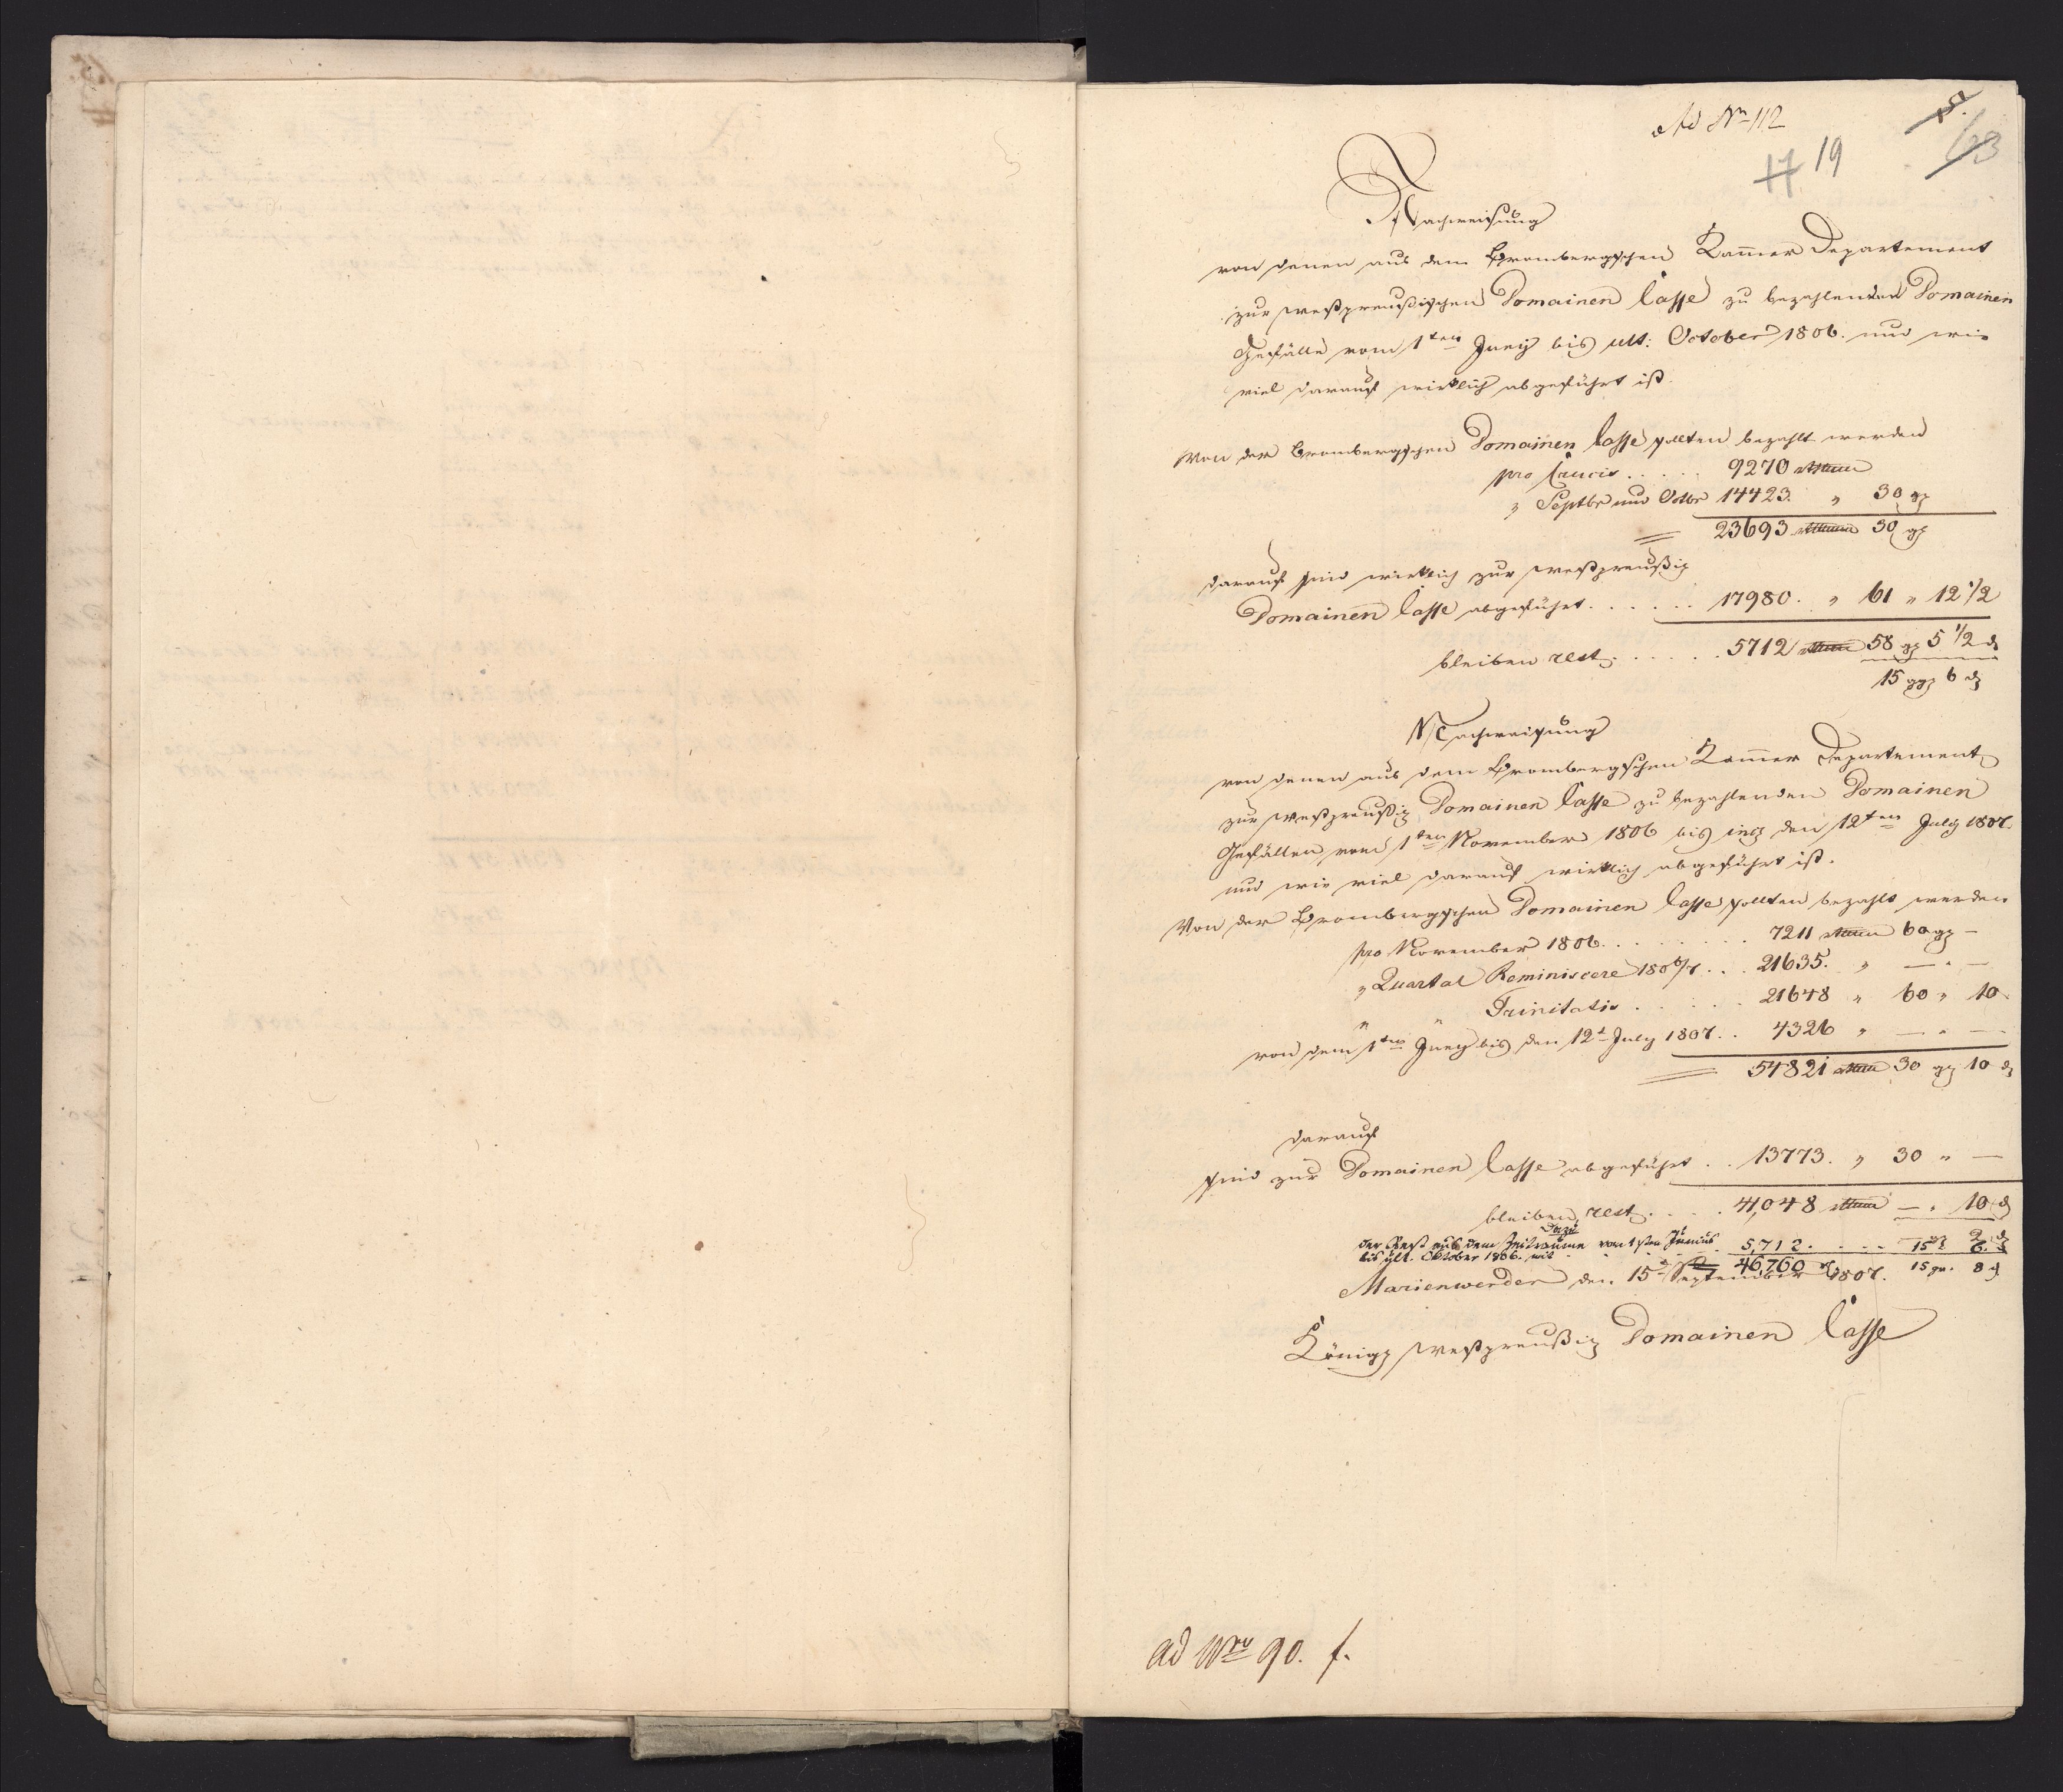 Ad Nro 112
17 19
63
Nachweisung
von denen aus dem Brombergschen Cammer Departement
zur westpreußischen Domainen Casse zu bezahlenden Domainen
Gefälle vom 1ten Juny bis ult: October 1806. und wie
viel darauf wirklich abgeführt ist.
Von der Brombergschen Domainen Casse sollten bezahlt werden
pro Crucis . . . . . 9270 rthlr
" Septbr und Octbr 14423. " 30 gr
23693 rthlr 30 gr
darauf sind wirklich zur westpreußis
Domainen Casse abgeführt . . . . . . 17980. " 61 " 12 1/2
bleiben rest . . . . . . 5712 rthlr 58 gr 5 1/2 d
15 ggr 6 d
Nachweisung
von denen aus dem Brombergschen Kammer Departement
zur Westpreußis Domainen Casse zu bezahlenden Domainen
Gefällen vom 1ten November 1806 bis incl den 12ten July 1807.
und wie viel darauf wirklich abgeführt ist.
Von der Brombergschen Domainen Casse sollten bezahlt werden
pro November 1806. . . . . . . . 7211 rthlr 60 gr –
" Quartal Reminiscere 1806/7 . . . 21635. " — " —
" " Trinitatis . . . . . . 21648 " 60 " 10.
von dem 1ten Juny bis den 12t July 1807 . . 4326 " — " —
54821 rthlr 30 gr 10 d
darauf
sind zur Domainen Casse abgeführt . . 13773. " 30 " —
bleiben rest . . . . 41,048 rthlr — " 10 d
Dazu
der Rest aus dem Zeitraume vom 1sten Junius
bis ult. Oktober 1806. mit . . . . 5,712. . . . . 15 gr 6. d
46,760 rt 15 gr. 8 d
Marienwerder den 15t September 1807.
Königl westpreußis Domainen Casse
ad Nro 90. f.